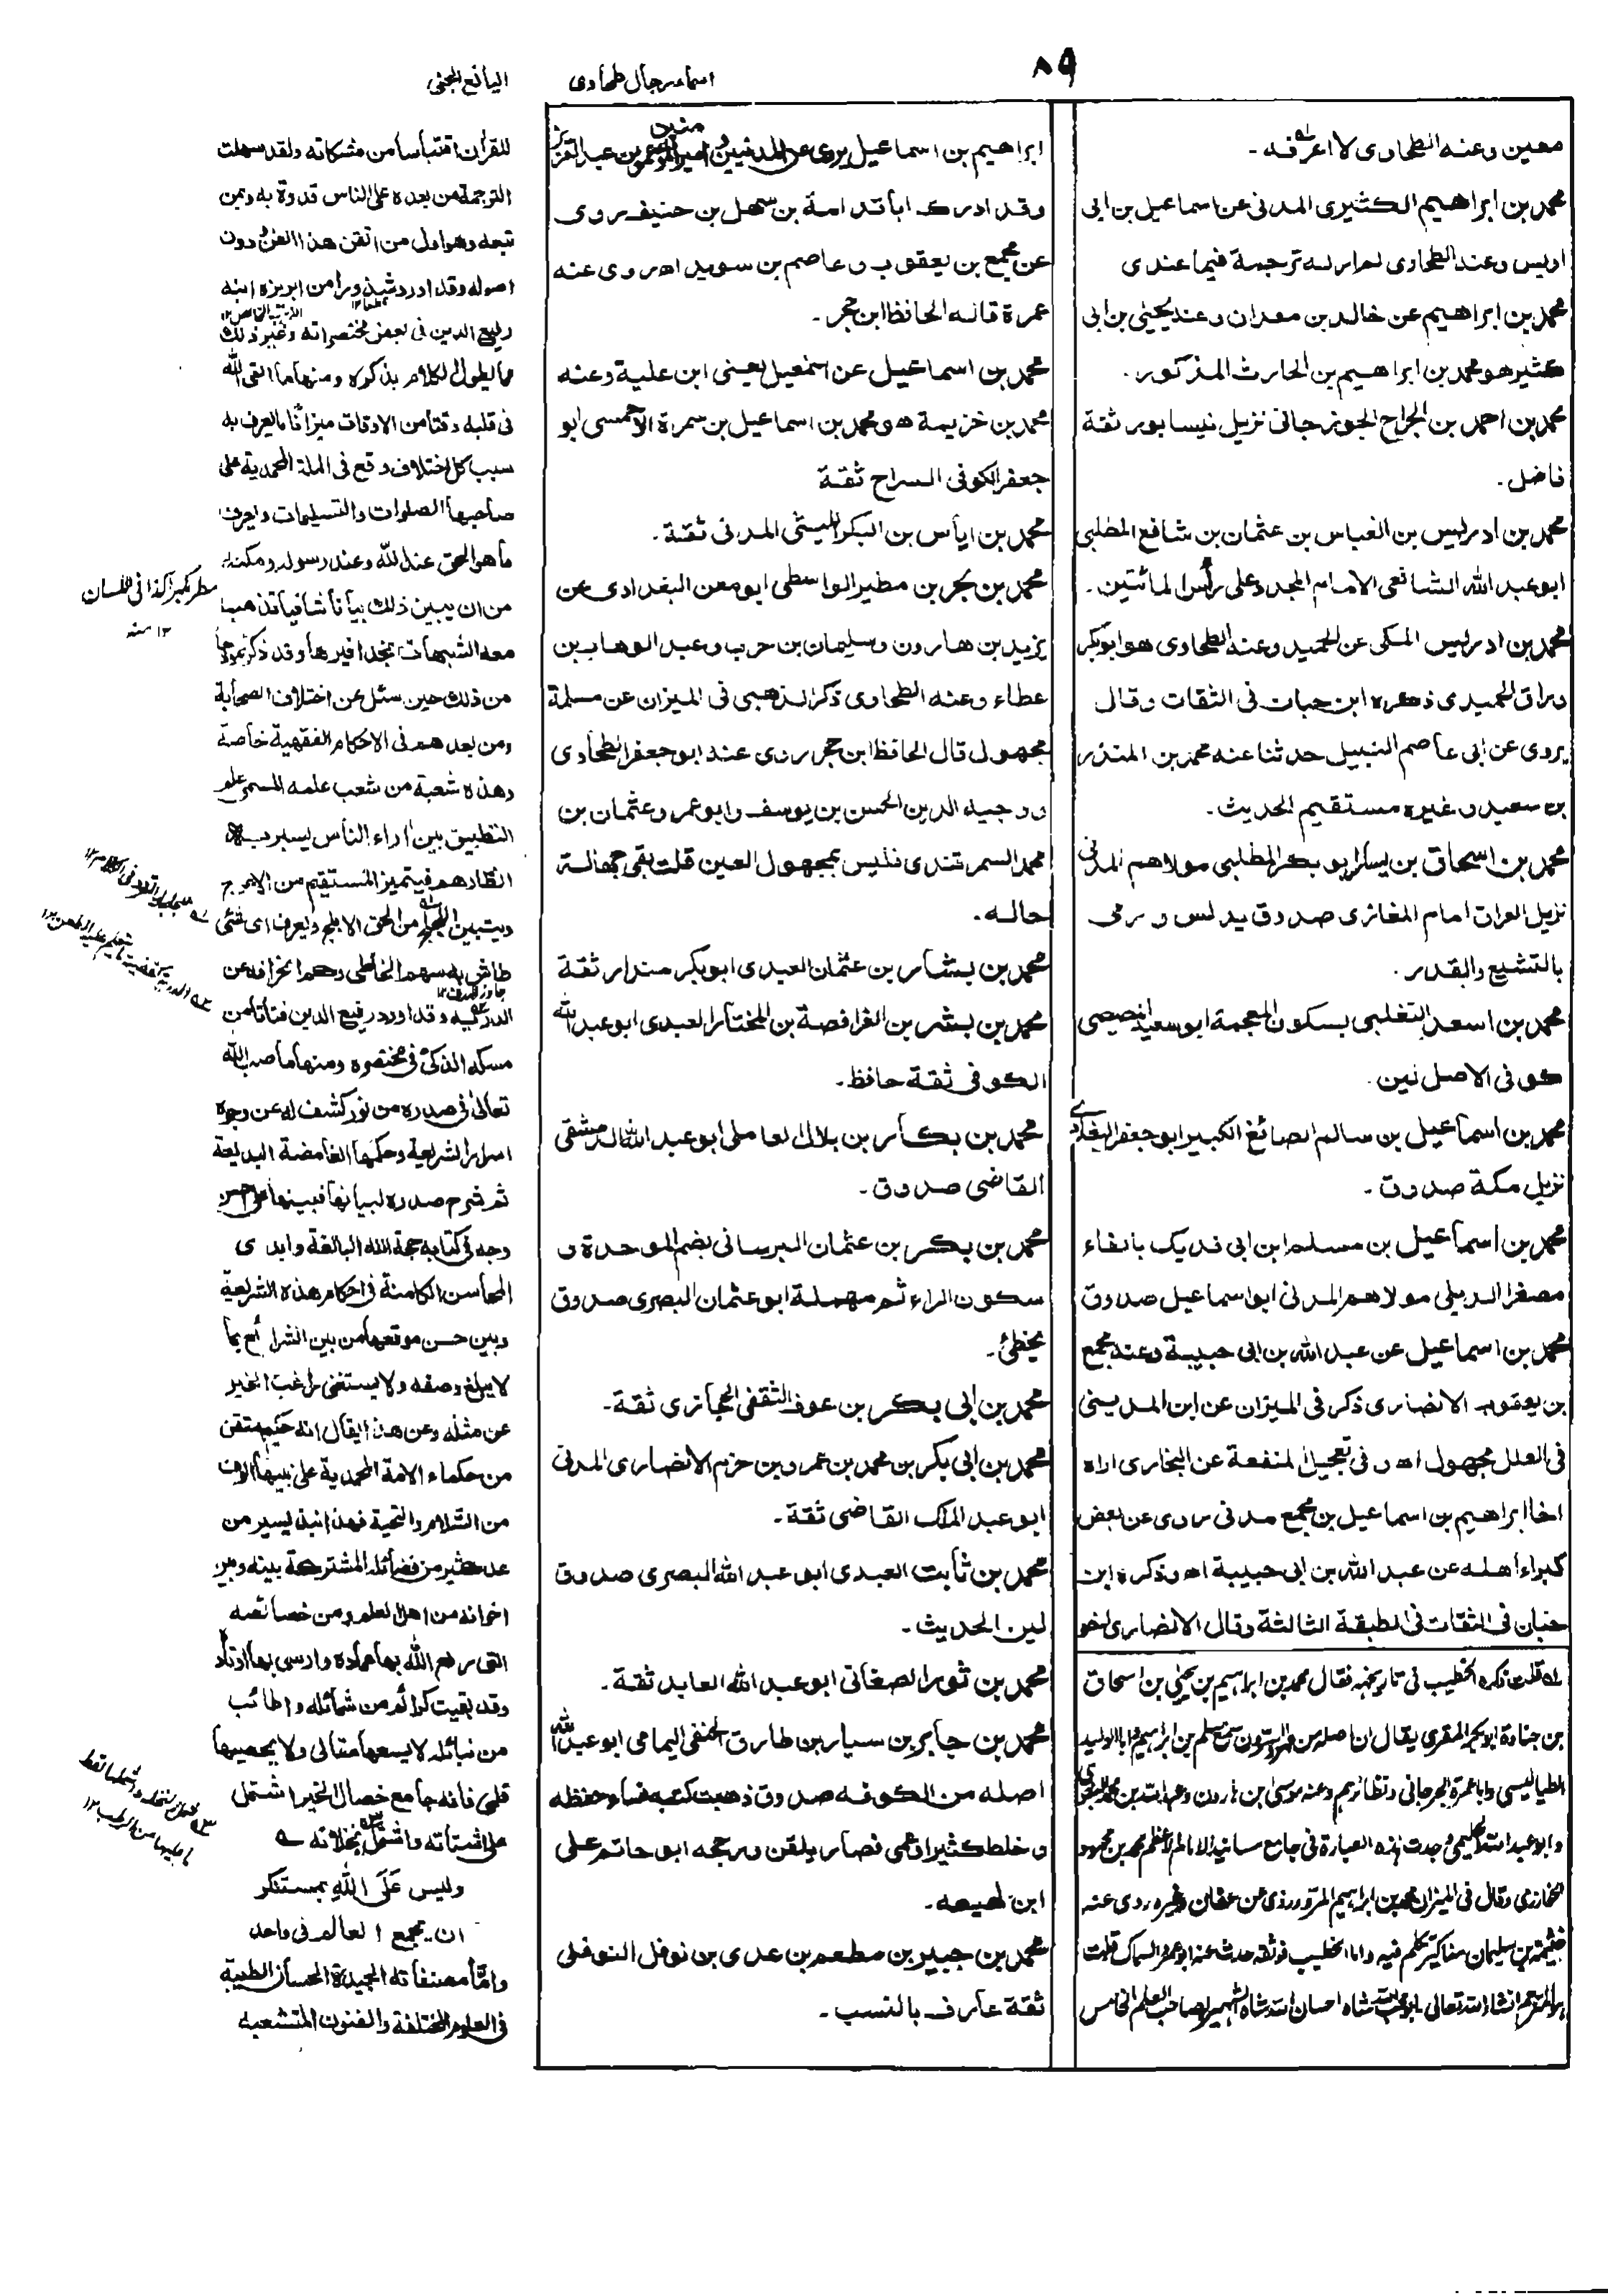 ٨٩
اسماء رجال طحاوى
اليانع الجنى
معين وعنه الطحاوى لا اعرفه ـ
محمد بن ابراهيم الكثيرى المدنى عن اسماعيل بن ابى
اديس وعند الطحاوى لم ار له ترجمة فيما عندى
محمد بن ابراهيم عن خالد بن معدان وعنه يحيى بن ابى
كثير هو محمد بن ابراهيم بن الحارث المذكور ـ
محمد بن احمد بن الجراح الجوزجانى نزيل نيسابور ثقة
فاضل ـ
محمد بن ادريس بن العباس بن عثمان بن شافع المطلبى
ابو عبد الله الشافعى الامام المجدد على رأس المائتين ـ
محمد بن ادريس المكى عن الحميد وعنه الطحاوى هو ابوبكر
وراق الحميدى ذكره ابن حبان فى الثقات وقال
يروى عن ابى عاصم النبيل حدثنا عنه محمد بن المنذر
بن سعيد وغيره مستقيم الحديث ـ
محمد بن اسحاق بن يسار ابو بكر المطلبى مولاهم المدنى
نزيل العراق امام المغازى صدوق يدلس و رمى
بالتشيع والقدر ـ
محمد بن اسعد التغلبى بسكون المعجمة ابو سعيد المصيصى
كوفى الاصل لين ـ
محمد بن اسماعيل بن سالم الصائغ الكبير ابو جعفر البغدادى
نزيل مكة صدوق ـ
محمد بن اسماعيل بن مسلم ابن ابى فديك بالفاء
مصغرا الديلى مولاهم المدنى ابو اسماعيل صدوق
محمد بن اسماعيل عن عبد الله بن ابى حبيبة وعنه مجمع
بن يعقوب الانصارى ذكر فى الميزان عن ابن المدينى
فى العلل مجهول اه و فى تعجيل المنفعة عن البخارى اراه
اخا ابراهيم بن اسماعيل بن مجمع مدنى روى عن بعض
كبراء اهله عن عبد الله بن ابى حبيبة اه وذكره ابن
حبان فى الثقات فى الطبقة الثالثة وقال الانصارى اخو
له قلت ذكره الخطيب فى تاريخه فقال محمد بن ابراهيم بن يحيى بن اسحاق
بن جناد ابو بكر المقرى يقال ان اصله من مرو سمع مسلم بن ابراهيم وابا الوليد
الطيالسى وابا عمرة الجرجانى ونظائرهم وعنه موسى بن هارون وعبد الله بن محمد البغوى
وابو عبد الله الحكيمى وجدت هذه العبارة فى جامع مسانيد الامام الاعظم لمحمد بن محمود
الخوارزمى وقال فى الميزان محمد بن ابراهيم المروروذى عن عفان وغيره روى عنه
خيثمة بن سليمان مناكير تكلم فيه واما الخطيب فوثقه حدث عنه ابو عمرو السماك قلت
هو المترجم انشاء الله تعالى ابو تراب شاه احسان الله شاه الشهير بصاحب العلم الخامس
ابراهيم بن اسماعيل يروى عن المدنيين و امير المؤمنين عمر بن عبد العزيز
وقد ادرك ابا قدامة بن سهل بن حنيف روى
عن مجمع بن يعقوب و عاصم بن سويد اه روى عنه
عمرة قاله الحافظ ابن حجر ـ
محمد بن اسماعيل عن اسمعيل يعنى ابن علية وعنه
محمد بن خزيمة هو محمد بن اسماعيل بن سمرة الاحمسى ابو
جعفر الكوفى السراج ثقة
محمد بن اياس بن البكر الليثى المدنى ثقة ـ
محمد بن بحر بن مطير الواسطى ابو معن البغدادى عن
يزيد بن هارون وسليمان بن حرب وعبد الوهاب بن
عطاء وعنه الطحاوى ذكر الذهبى فى الميزان عن مسلمة
مجهول قال الحافظ ابن حجر روى عنه ابو جعفر الطحاوى
ووجيه الدين الحسن بن يوسف وابو عمر وعثمان بن
محمد السمرقندى فليس بمجهول العين قلت بقى جهالة
حاله ـ
محمد بن بشار بن عثمان العبدى ابوبكر بندار ثقة
محمد بن بشر بن الفرافصة بن المختار العبدى ابو عبد الله
الكوفى ثقة حافظ ـ
محمد بن بكار بن بلال العاملى ابو عبد الله الدمشقى
القاضى صدوق ـ
محمد بن بكر بن عثمان البرسانى بضم الموحدة و
سكون الراء ثم مهملة ابو عثمان البصرى صدوق
يخطئ ـ
محمد بن ابى بكر بن عوف الثقفى الحجازى ثقة ـ
محمد بن ابى بكر بن محمد بن عمرو بن حزم الانصارى المدنى
ابو عبد الملك القاضى ثقة ـ
محمد بن ثابت العبدى ابو عبد الله البصرى صدوق
لين الحديث ـ
محمد بن ثور الصنعانى ابو عبد الله العابد ثقة ـ
محمد بن جابر بن سيار بن طارق الحنفى اليمامى ابو عبد الله
اصله من الكوفه صدوق ذهبت كتبه فساء حفظه
و خلط كثيرا وعمى فصار يلقن ورجحه ابو حاتم على
ابن لهيعه ـ
محمد بن جبير بن مطعم بن عدى بن نوفل النوفلى
ثقة عارف بالنسب ـ
للقران اقتباسا من مشكاته ولقد سهلت
الترجمة من بعده على الناس قدوة به وبمن
تبعه وهو اول من اتقن هذا الفن و دون
اصوله وقد اورد شيئا نزرا من ابريزه ابنه
رفيع الدين فى بعض مختصراته وغير ذلك
مما يطول الكلام بذكره ومنها ما القى الله
فى قلبه وقتا من الاوقات ميزانا يعرف به
سبب كل اختلاف وقع فى الملة المحمدية على
صاحبها الصلوات والتسليمات ويعرف
ما هو الحق عند الله وعند رسوله ومكنه
من ان يبين ذلك بيانا شافيا تذهب
معه الشبهات بحذافيرها وقد ذكر نموذجا
من ذلك حين سئل عن اختلاف الصحابة
ومن بعدهم فى الاحكام الفقهية خاصة
وهذه شعبة من شعب علمه المسمى علم
التطبيق بين اراء الناس يسبر به
انظارهم فيتميز المستقيم من الاعوج
ويتبين اللجلج من الحق الابلج ويعرف اى شئ
طاش به سهم الخاطى وحكم انحرافه عن
الدريه وقد اورد رفيع الدين فتاتا من
مسكه الذكى فى مختصره ومنها ما صب الله
تعالى فى صدره من نور كشف له عن وجوه
اسرار الشريعة وحكمها الغامضة البديعة
ثم شرح صدره لبيانها فبينها على احسن
وجه فى كتابه حجة الله البالغة وابدى
المحاسن الكامنة فى احكام هذه الشريعة
وبين حسن موقعها من بين الشرائع بما
لا يبلغ وصفه ولا يستغنى راغب الخير
عن مثله وعن هذا يقال انه حكيم متقن
من حكماء الامة المحمدية على نبيها الوف
من السلام والتحية فهذا نبذ يسير من
عد كثير من فضائله المشتركة بينه وبين
اخوانه من اهل العلم ومن خصائصه
التى رفع الله بها عماده وارسى بها اوتاده
وقد بقيت كرائم من شمائله واطائب
من نبائله لا يسعها مقالى ولا يحصيها
قلمى فانه جامع خصال الخير اشتمل
على اشتاته واشتمل بخلاله ؎
وليس عَلَى اللهِ بمستنكر
ان يجمع العالم فى واحد
وامّا مصنفاته الجيدة الحسان الطيبة
فى العلوم المختلفة والفنون المتشعبه